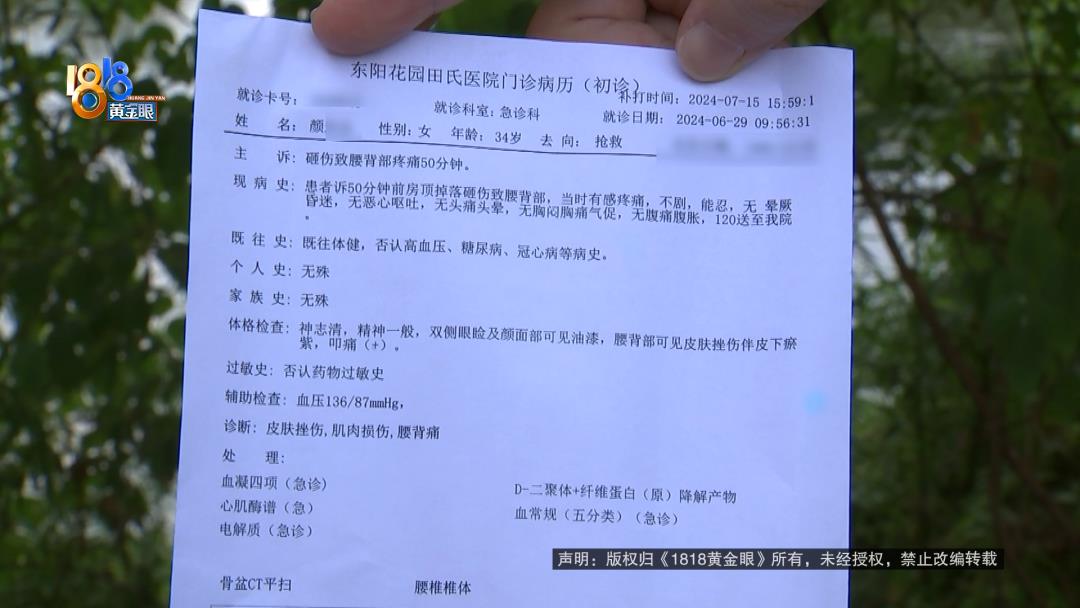 1818
HUANG JIN YAN
黄金眼
东阳花园田氏医院门诊病历（初诊）
补打时间：2024-07-15 15:59:1
就诊卡号：
就诊科室：急诊科
就诊日期： 2024-06-29 09:56:31
姓 名：颜 性别：女 年龄：34岁 去 向： 抢救
主 诉：砸伤致腰背部疼痛50分钟。
现 病 史：患者诉50分钟前房顶掉落砸伤致腰背部，当时有感疼痛，不剧，能忍，无 晕厥
昏迷，无恶心呕吐，无头痛头晕，无胸闷胸痛气促，无腹痛腹胀，120送至我院
。
既 往 史：既往体健，否认高血压、糖尿病、冠心病等病史。
个 人 史：无殊
家 族 史：无殊
体格检查：神志清，精神一般，双侧眼睑及颜面部可见油漆，腰背部可见皮肤挫伤伴皮下瘀
紫，叩痛（+）。
过敏史：否认药物过敏史
辅助检查：血压136/87mmHg，
诊断：皮肤挫伤,肌肉损伤,腰背痛
处 理：
血凝四项（急诊）
D-二聚体+纤维蛋白（原）降解产物
心肌酶谱（急）
血常规（五分类）（急诊）
电解质（急诊）
声明：版权归《1818黄金眼》所有，未经授权，禁止改编转载
骨盆CT平扫
腰椎椎体